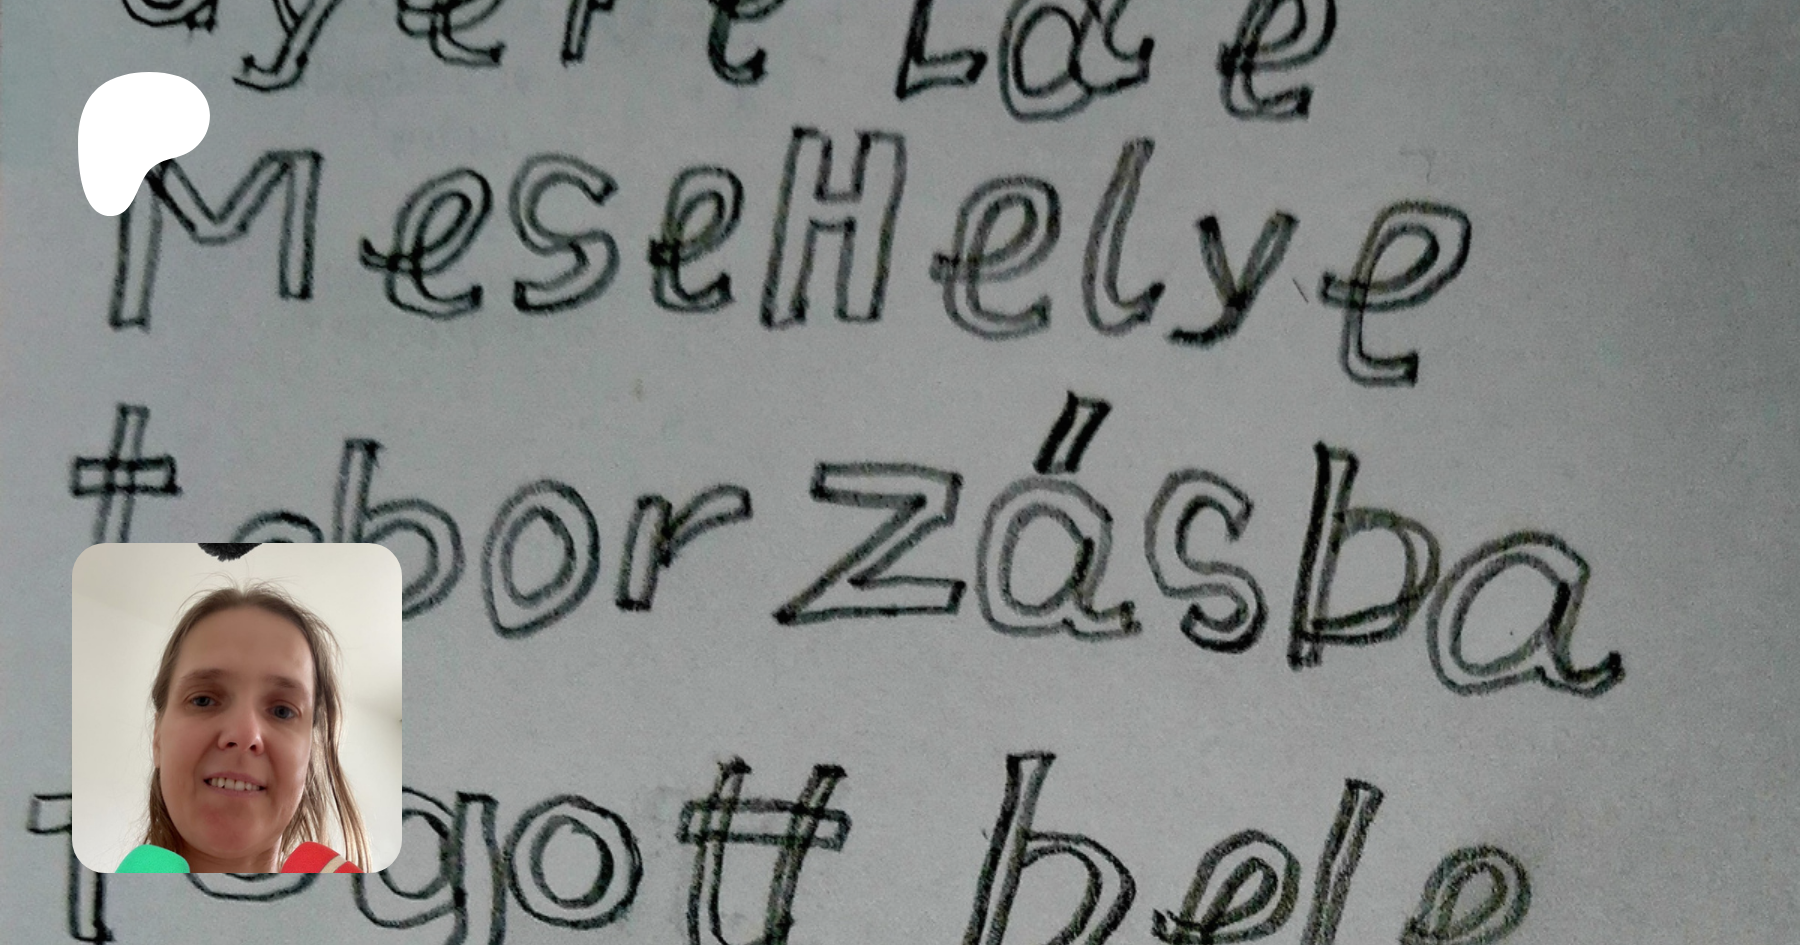 MeseHelye
toborzásba
fogott bele